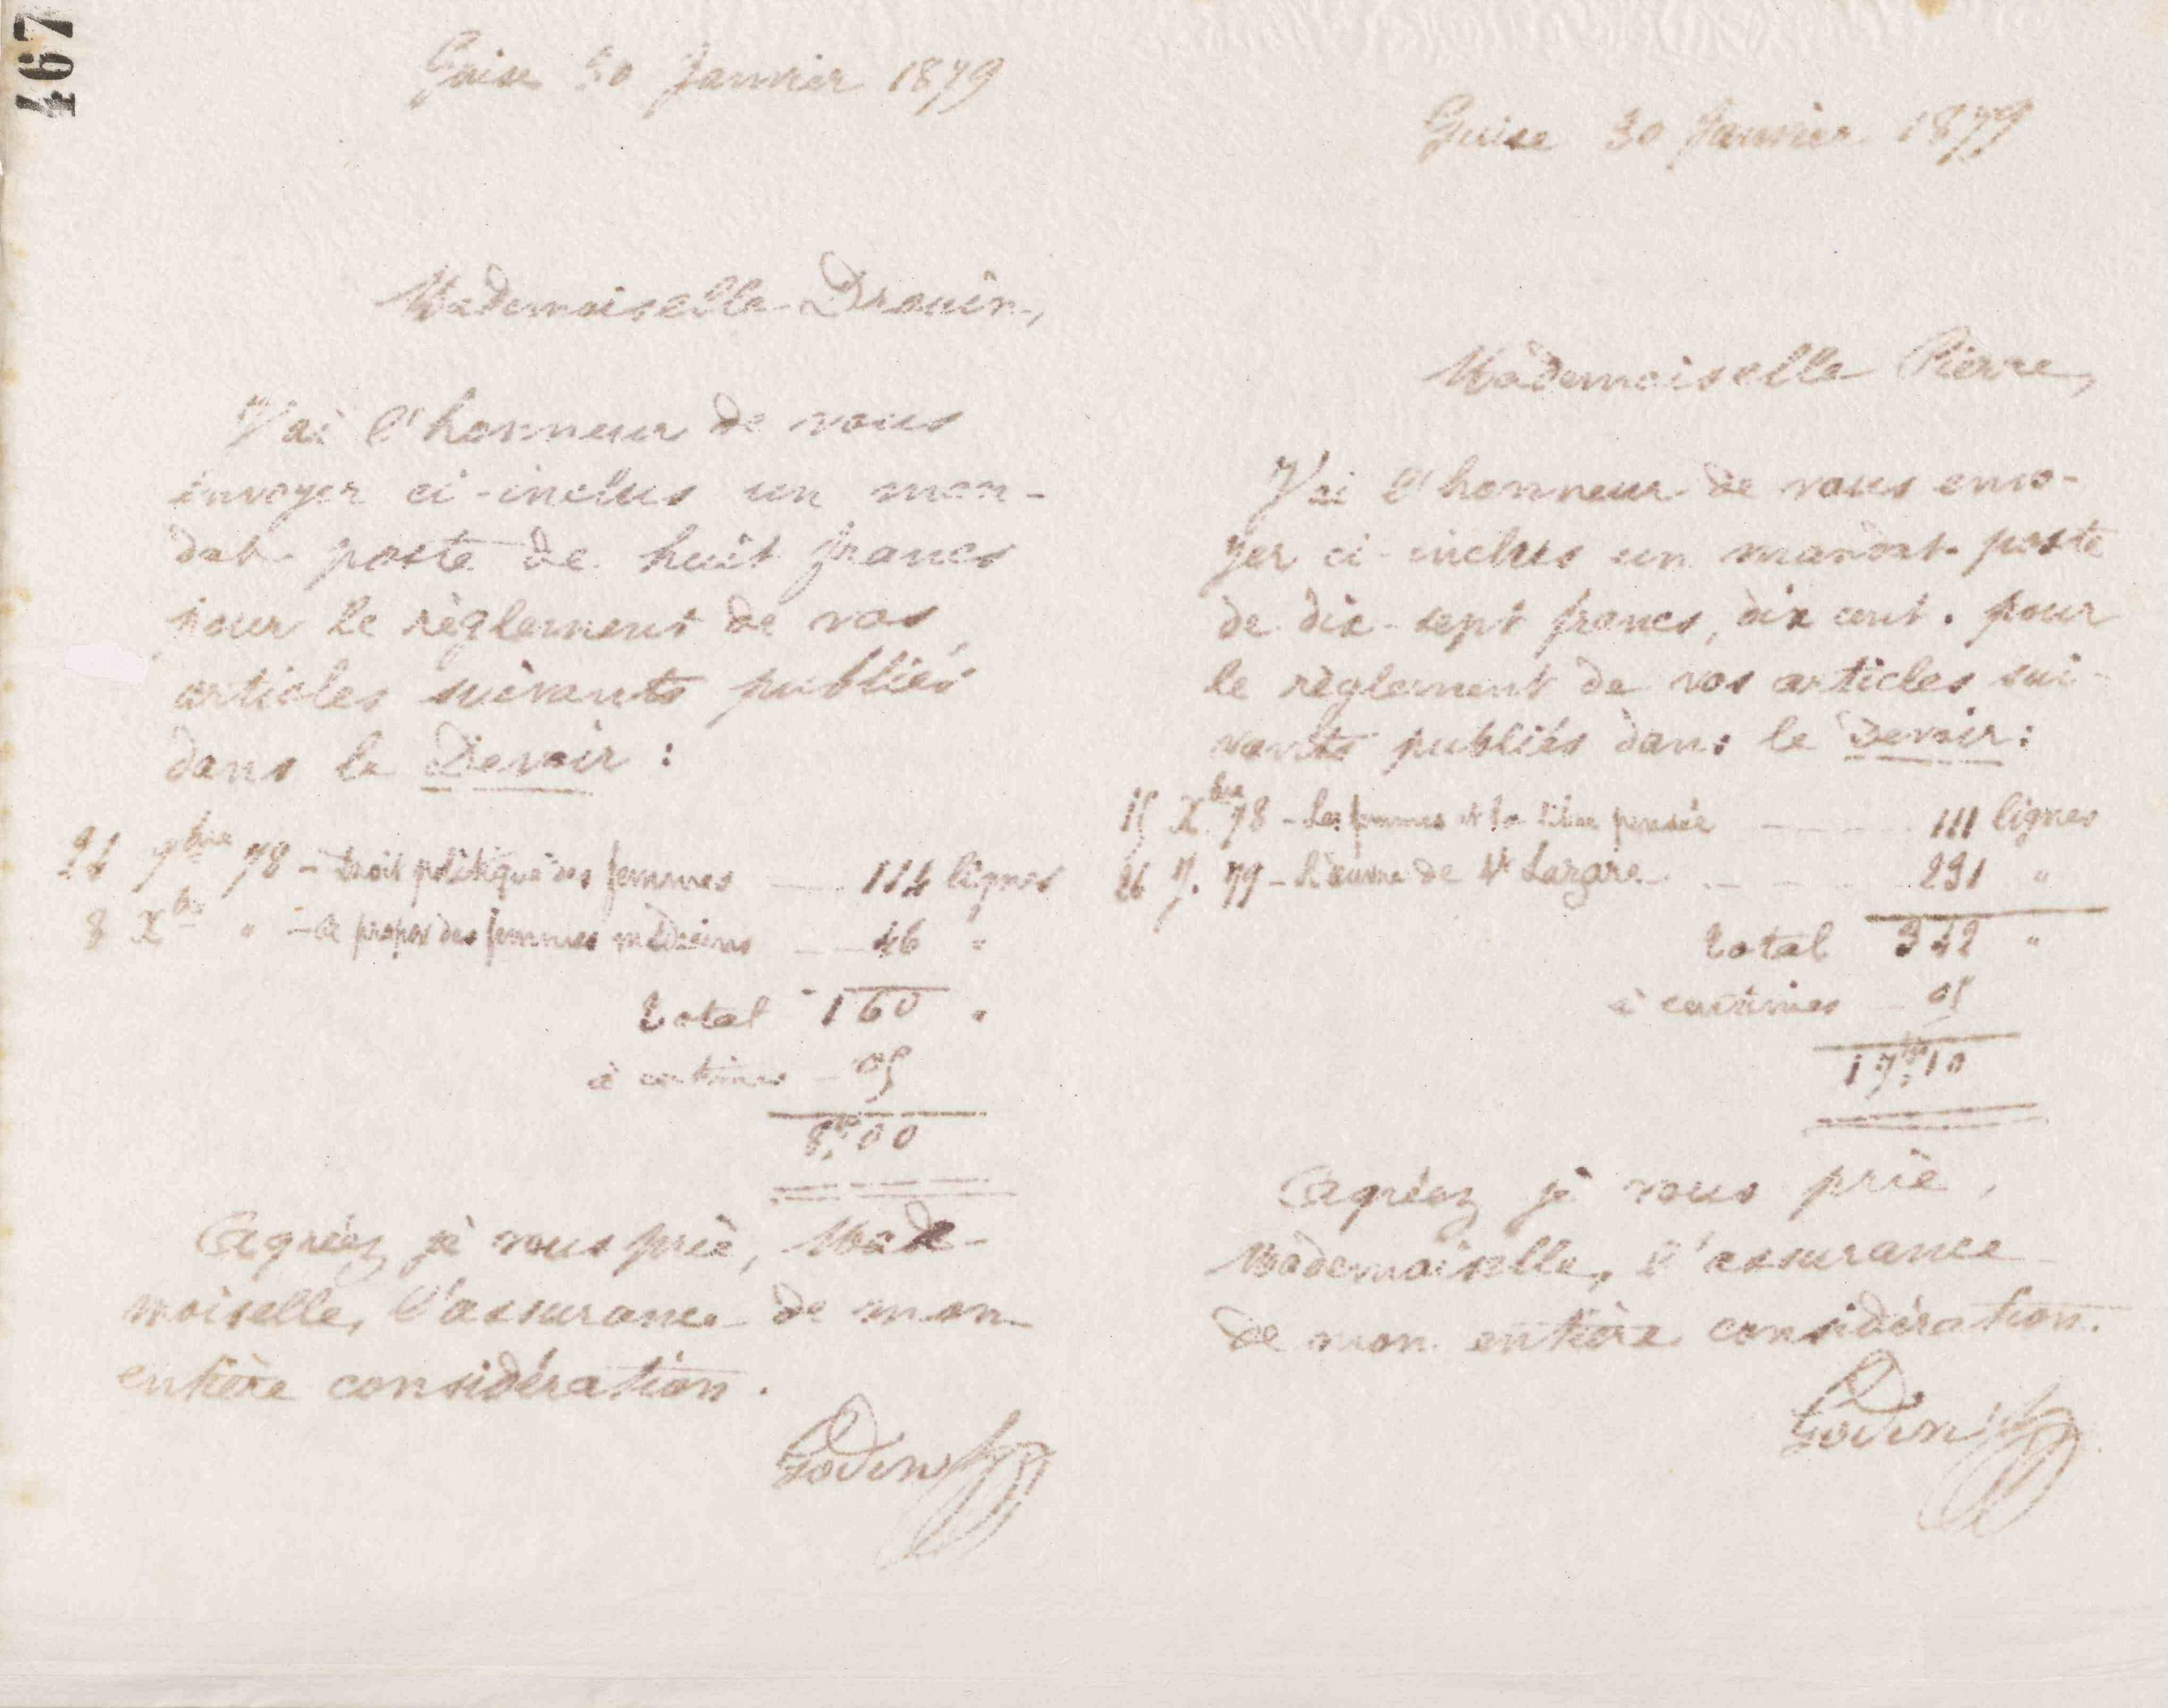 467
Guise 30 Janvier 1879
Mademoiselle Drouin,
J'ai l'honneur de vous
envoyer ci-inclus un man-
dat poste de huit francs
pour le règlement de vos
articles suivants publiés
dans le Devoir :
7bre 78 - Droit politique des femmes 114 lignes
8 Xbre " - A propos des femmes médecins 46 "
Total 160 "
à centimes 05
8fr,00
Agréez je vous prie, Made-
moiselle, l'assurance de mon
entière considération.
Godin
Guise 30 Janvier 1879
Mademoiselle Pierre,
J'ai l'honneur de vous envo-
yer ci-inclus un mandat poste
de dix-sept francs, dix cent. pour
le règlement de vos articles sui-
vants publiés dans le Devoir :
15 Xbre 78 - Les femmes et la libre pensée 111 lignes
26 J. 79 - L'œuvre de St Lazare 231 "
Total 342 "
à centimes 05
17fr,10
Agréez je vous prie,
Mademoiselle, l'assurance
de mon entière considération.
Godin